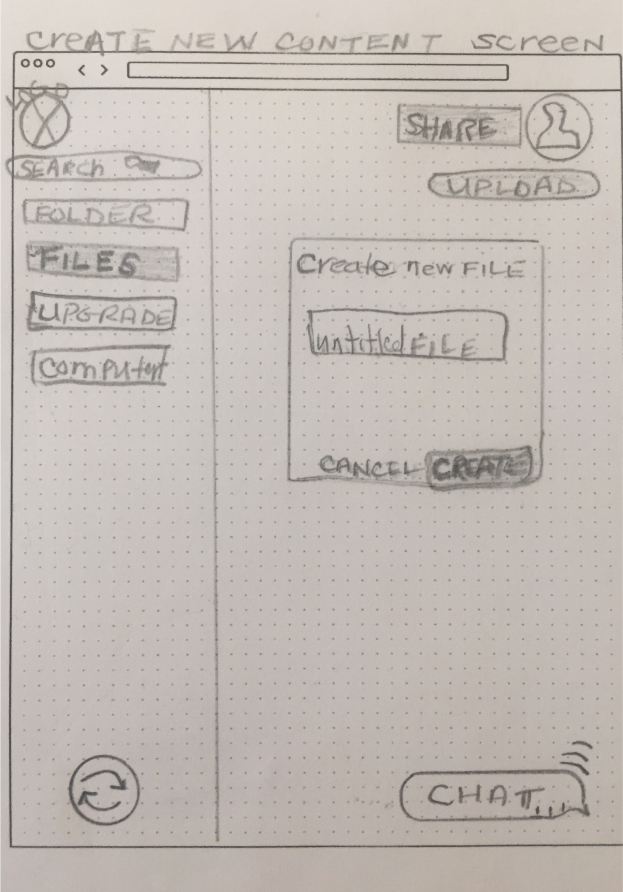 CREATE NEW CONTENT SCREEN
LOGO
SHARE
SEARCH
UPLOAD
FOLDER
FILES
UPGRADE
Computer
Create new FILE
untitled FILE
CANCEL CREATE
CHAT...